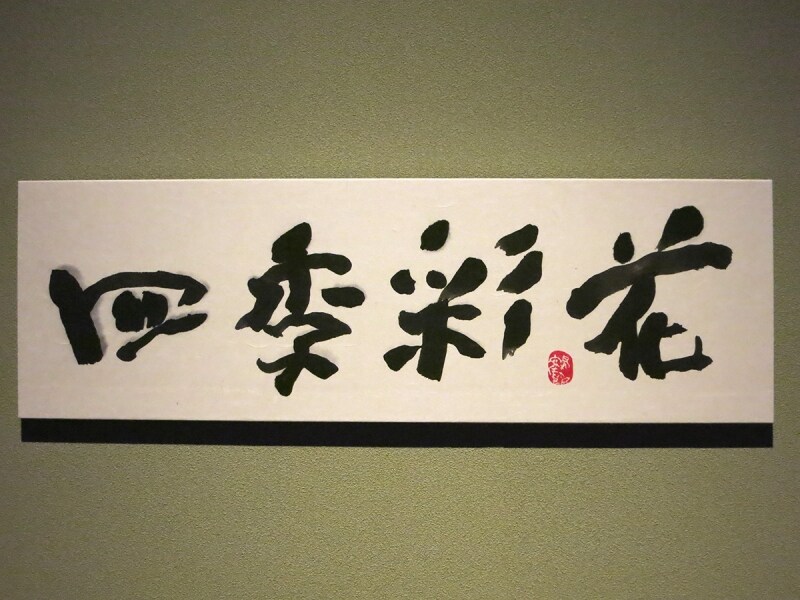 四季彩花